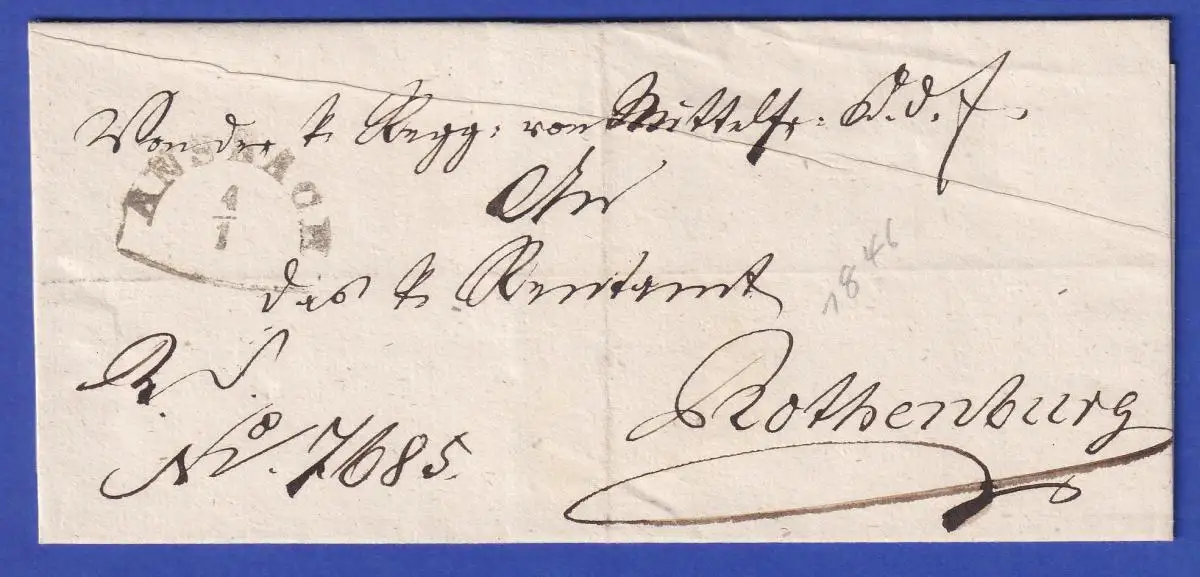 Von der k. Regg: von Mittelfr: K. d. F.
ANSBACH
4
1
An
das k. Rentamt
1846
R. S.
Rothenburg
No. 7685.